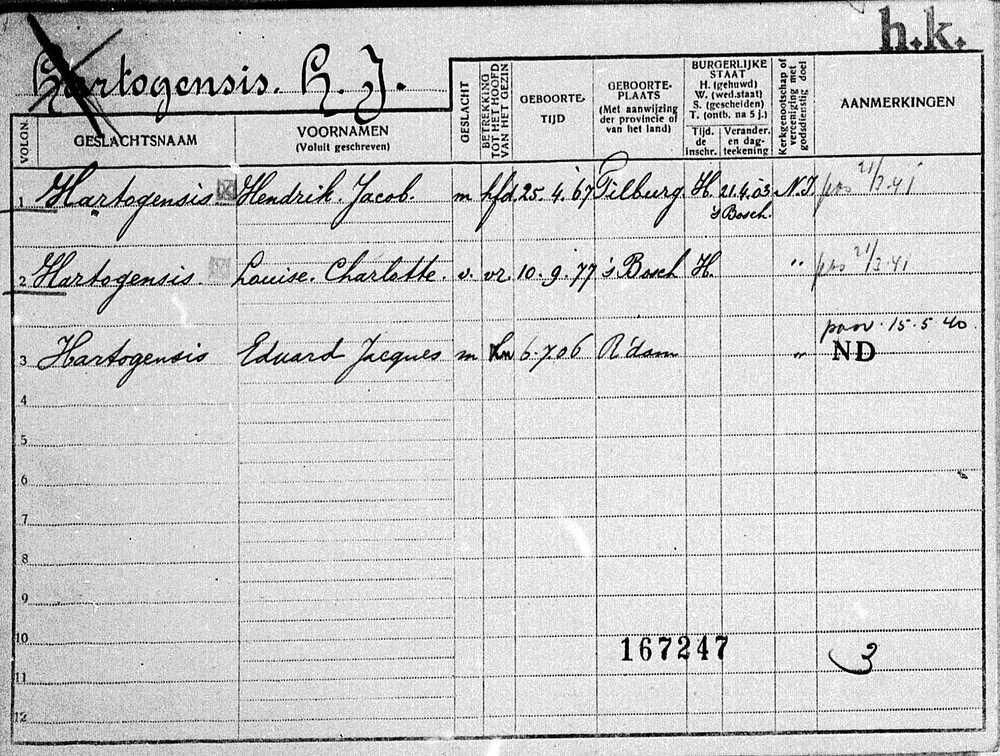 h.k.
Hartogensis. H. J.
VOLGN. GESLACHTSNAAM VOORNAMEN (Voluit geschreven) GESLACHT BETREKKING TOT HET HOOFD VAN HET GEZIN GEBOORTE-TIJD GEBOORTE-PLAATS (Met aanwijzing der provincie of van het land) BURGERLIJKE STAAT H. (gehuwd) W. (wed.staat) S. (gescheiden) T. (ontb. na 5 j.) Tijd. de inschr. Verander. en dag-teekening Kerkgenootschap of vereeniging met godsdienstig doel AANMERKINGEN
1 Hartogensis. Hendrik. Jacob. m hfd 25. 4. '67 Tilburg H. 21.4.03 N.I. 21/3.41
's Bosch.
2 Hartogensis. Louise. Charlotte. v. vr. 10. 9. '77 's Bosch H. " 21/3.41
15.5 40.
3 Hartogensis Eduard Jacques m 6.7 06 R'dam " ND
4
5
6
7
8
9
10 167247 3
11
12